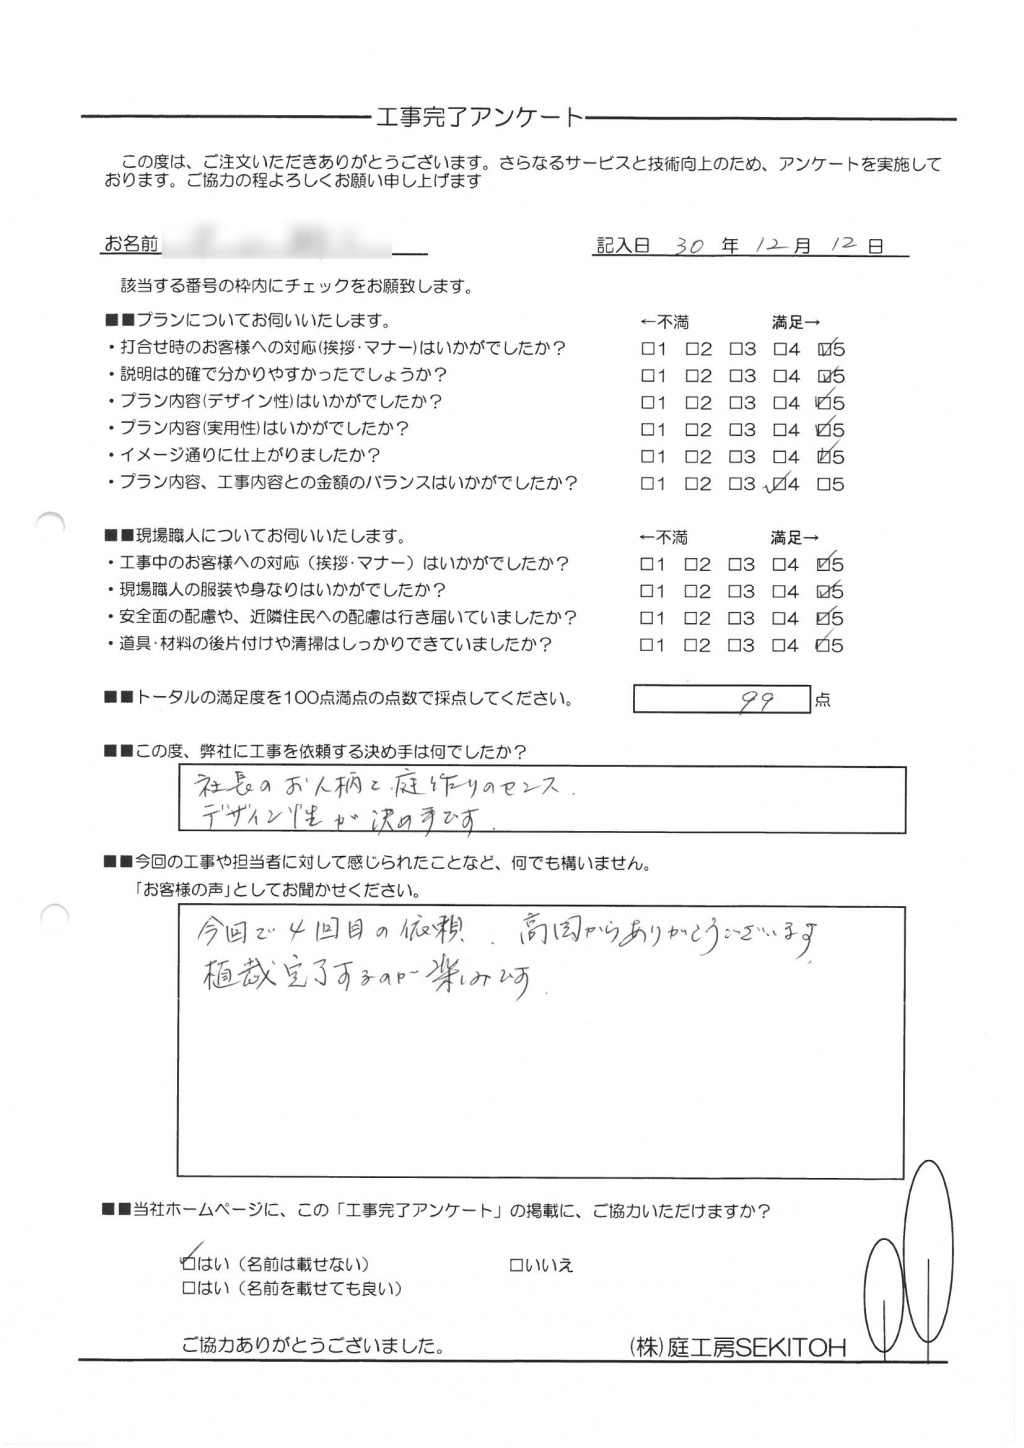 工事完了アンケート
この度は、ご注文いただきありがとうございます。さらなるサービスと技術向上のため、アンケートを実施して
おります。ご協力の程よろしくお願い申し上げます
お名前 記入日 30 年 12 月 12 日
該当する番号の枠内にチェックをお願致します。
■■プランについてお伺いいたします。 ←不満 満足→
・打合せ時のお客様への対応(挨拶・マナー)はいかがでしたか? □1 □2 □3 □4 ☑5
・説明は的確で分かりやすかったでしょうか? □1 □2 □3 □4 ☑5
・プラン内容(デザイン性)はいかがでしたか? □1 □2 □3 □4 ☑5
・プラン内容(実用性)はいかがでしたか? □1 □2 □3 □4 ☑5
・イメージ通りに仕上がりましたか? □1 □2 □3 □4 ☑5
・プラン内容、工事内容との金額のバランスはいかがでしたか? □1 □2 □3 ☑4 □5
■■現場職人についてお伺いいたします。 ←不満 満足→
・工事中のお客様への対応（挨拶・マナー）はいかがでしたか? □1 □2 □3 □4 ☑5
・現場職人の服装や身なりはいかがでしたか? □1 □2 □3 □4 ☑5
・安全面の配慮や、近隣住民への配慮は行き届いていましたか? □1 □2 □3 □4 ☑5
・道具・材料の後片付けや清掃はしっかりできていましたか? □1 □2 □3 □4 ☑5
■■トータルの満足度を100点満点の点数で採点してください。 99 点
■■この度、弊社に工事を依頼する決め手は何でしたか?
社長のお人柄と庭作りのセンス.
デザイン性が決め手です.
■■今回の工事や担当者に対して感じられたことなど、何でも構いません。
「お客様の声」としてお聞かせください。
今回で4回目の依頼、高岡からありがとうございます
植栽完了するのが楽しみです.
■■当社ホームページに、この「工事完了アンケート」の掲載に、ご協力いただけますか?
☑はい（名前は載せない） □いいえ
□はい（名前を載せても良い）
ご協力ありがとうございました。 (株)庭工房SEKITOH